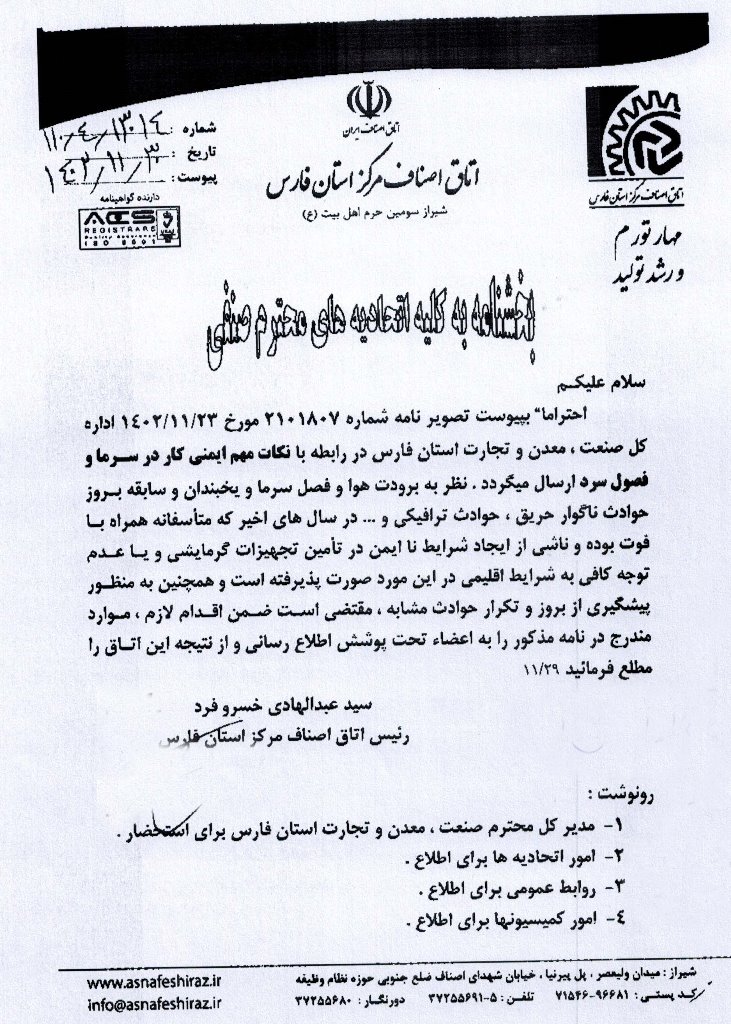 اتاق اصناف ایران
اتاق اصناف مرکز استان فارس
شیراز سومین حرم اهل بیت (ع)
شماره : ۱۱۰/۴/۱۳۰۱۴
تاریخ : ۱۴۰۲/۱۱/۳۰
پیوست :
دارنده گواهینامه
ACS
REGISTRARS
ISO 9001
اتاق اصناف مرکز استان فارس
مهار تورم
و رشد تولید
بخشنامه به کلیه اتحادیه های محترم صنفی
سلام علیکم
احتراما" بپیوست تصویر نامه شماره ۲۱۰۱۸۰۷ مورخ ۱۴۰۲/۱۱/۲۳ اداره
کل صنعت ، معدن و تجارت استان فارس در رابطه با نکات مهم ایمنی کار در سرما و
فصول سرد ارسال میگردد . نظر به برودت هوا و فصل سرما و یخبندان و سابقه بروز
حوادث ناگوار حریق ، حوادث ترافیکی و ... در سال های اخیر که متأسفانه همراه با
فوت بوده و ناشی از ایجاد شرایط نا ایمن در تأمین تجهیزات گرمایشی و یا عدم
توجه کافی به شرایط اقلیمی در این مورد صورت پذیرفته است و همچنین به منظور
پیشگیری از بروز و تکرار حوادث مشابه ، مقتضی است ضمن اقدام لازم ، موارد
مندرج در نامه مذکور را به اعضاء تحت پوشش اطلاع رسانی و از نتیجه این اتاق را
مطلع فرمائید ۱۱/۲۹
سید عبدالهادی خسرو فرد
رئیس اتاق اصناف مرکز استان فارس
رونوشت :
۱- مدیر کل محترم صنعت ، معدن و تجارت استان فارس برای استحضار .
۲- امور اتحادیه ها برای اطلاع .
۳- روابط عمومی برای اطلاع .
۴- امور کمیسیونها برای اطلاع .
شیراز : میدان ولیعصر ، پل پیرنیا ، خیابان شهدای اصناف ضلع جنوبی حوزه نظام وظیفه
کد پستی : ۹۶۶۸۱-۷۱۵۴۶ تلفن : ۵-۳۷۲۵۵۶۹۱ دورنگار : ۳۷۲۵۵۶۸۰
www.asnafeshiraz.ir
info@asnafeshiraz.ir